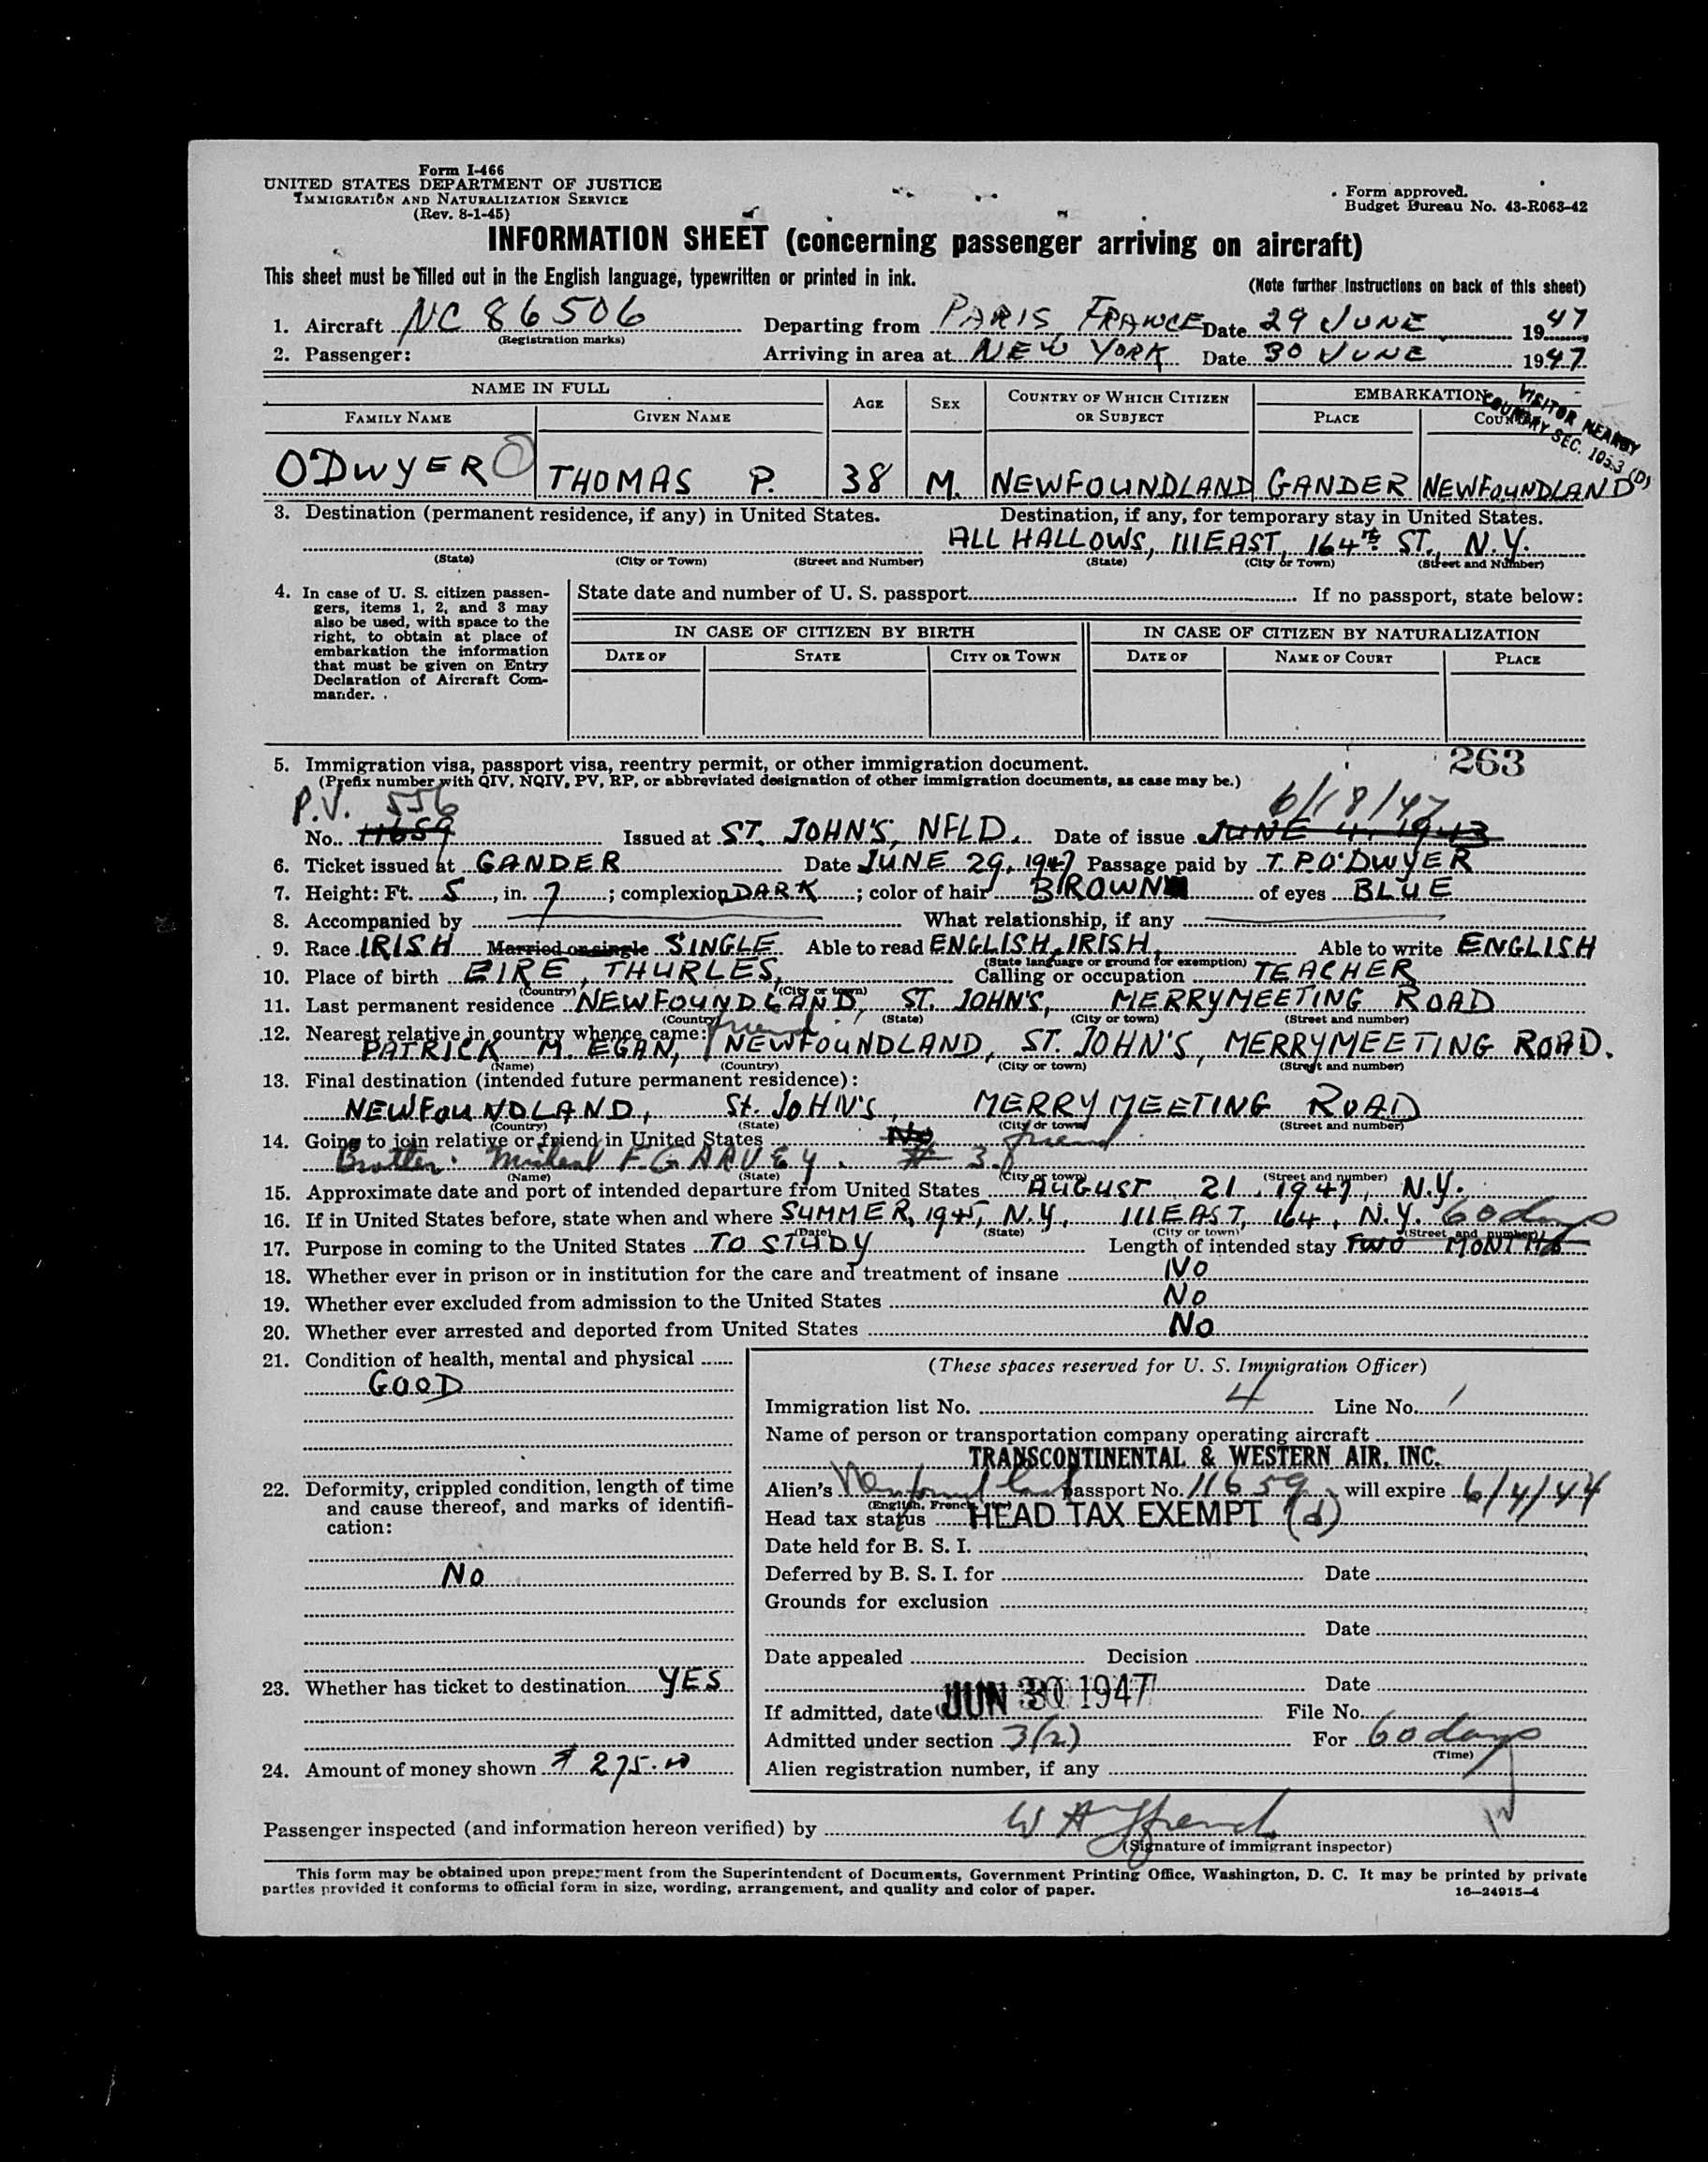 Form I-466
UNITED STATES DEPARTMENT OF JUSTICE
IMMIGRATION AND NATURALIZATION SERVICE
(Rev. 8-1-45)
Form approved.
Budget Bureau No. 43-R063-42
INFORMATION SHEET (concerning passenger arriving on aircraft)
This sheet must be filled out in the English language, typewritten or printed in ink. (Note further instructions on back of this sheet)
1. Aircraft NC 86506 Departing from PARIS, FRANCE Date 29 JUNE 1947
(Registration marks)
2. Passenger: Arriving in area at NEW YORK Date 30 JUNE 1947
NAME IN FULL AGE SEX COUNTRY OF WHICH CITIZEN OR SUBJECT EMBARKATION
FAMILY NAME GIVEN NAME PLACE COUNTRY
VISITOR NEARBY
COUNTRY SEC. 105.3 (D)
ODWYER O THOMAS P. 38 M. NEWFOUNDLAND GANDER NEWFOUNDLAND
3. Destination (permanent residence, if any) in United States. Destination, if any, for temporary stay in United States.
ALL HALLOWS, 111 EAST, 164th ST., N.Y.
(State) (City or Town) (Street and Number) (State) (City or Town) (Street and Number)
4. In case of U. S. citizen passengers, items 1, 2, and 3 may also be used, with space to the right, to obtain at place of embarkation the information that must be given on Entry Declaration of Aircraft Commander.
State date and number of U. S. passport If no passport, state below:
IN CASE OF CITIZEN BY BIRTH IN CASE OF CITIZEN BY NATURALIZATION
DATE OF STATE CITY OR TOWN DATE OF NAME OF COURT PLACE
263
5. Immigration visa, passport visa, reentry permit, or other immigration document.
(Prefix number with QIV, NQIV, PV, RP, or abbreviated designation of other immigration documents, as case may be.)
P.V. 556 6/18/47
No. 11659 Issued at ST. JOHN'S, NFLD. Date of issue JUNE 4, 1943
6. Ticket issued at GANDER Date JUNE 29, 1947 Passage paid by T.P. O'DWYER
7. Height: Ft. 5, in. 7; complexion DARK; color of hair BROWN of eyes BLUE
8. Accompanied by What relationship, if any
9. Race IRISH Married or single SINGLE Able to read ENGLISH, IRISH, Able to write ENGLISH
(State language or ground for exemption)
10. Place of birth EIRE, THURLES, Calling or occupation TEACHER
(Country) (City or town)
11. Last permanent residence NEWFOUNDLAND, ST. JOHN'S, MERRYMEETING ROAD
(Country) (State) (City or town) (Street and number)
12. Nearest relative in country whence came: friend
PATRICK M. EGAN, NEWFOUNDLAND, ST. JOHN'S, MERRYMEETING ROAD.
(Name) (Country) (City or town) (Street and number)
13. Final destination (intended future permanent residence):
NEWFOUNDLAND, St. JOHN'S, MERRYMEETING ROAD
(Country) (State) (City or town) (Street and number)
14. Going to join relative or friend in United States No friend
Brother F. GARVEY. # 3.
(Name) (State) (City or town) (Street and number)
15. Approximate date and port of intended departure from United States AUGUST 21, 1947, N.Y.
16. If in United States before, state when and where SUMMER, 1945, N.Y., 111 EAST, 164, N.Y. 60 days
(Date) (State) (City or town) (Street and number)
17. Purpose in coming to the United States TO STUDY Length of intended stay TWO MONTHS
18. Whether ever in prison or in institution for the care and treatment of insane NO
19. Whether ever excluded from admission to the United States No
20. Whether ever arrested and deported from United States No
21. Condition of health, mental and physical
GOOD
22. Deformity, crippled condition, length of time and cause thereof, and marks of identification:
No
23. Whether has ticket to destination YES
24. Amount of money shown $ 275.00
(These spaces reserved for U. S. Immigration Officer)
Immigration list No. 4 Line No. 1
Name of person or transportation company operating aircraft
TRANSCONTINENTAL & WESTERN AIR, INC.
Alien's Newfoundland passport No. 11659 will expire 6/4/44
(English, French, etc.)
Head tax status HEAD TAX EXEMPT (d)
Date held for B. S. I.
Deferred by B. S. I. for Date
Grounds for exclusion
Date
Date appealed Decision
Date
If admitted, date JUN 30 1947 File No.
Admitted under section 3(2) For 60 days
(Time)
Alien registration number, if any
Passenger inspected (and information hereon verified) by
(Signature of immigrant inspector)
This form may be obtained upon prepayment from the Superintendent of Documents, Government Printing Office, Washington, D. C. It may be printed by private
parties provided it conforms to official form in size, wording, arrangement, and quality and color of paper. 16—24915-4